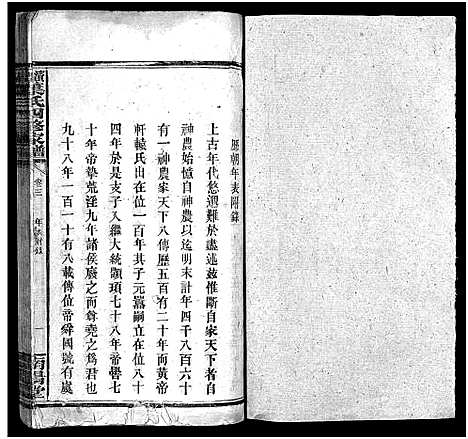 歷朝年表附錄
上古年代悠遐難於盡述茲惟斷自家天下者自
神農始憶自神農以迄明末計年四千八百六十
有一神農家天下八傳歷五百有二十年而黃帝
軒轅氏出在位一百年其子元囂嗣立在位八十
四年於是支子入繼大統顓頊七十八年帝嚳七
十年帝摯荒淫九年諸侯廢之而尊堯之爲君也
九十八年一百一十有八載傳位帝舜國號有虞
葉氏四修家譜
卷三
年表附錄
一
南陽堂